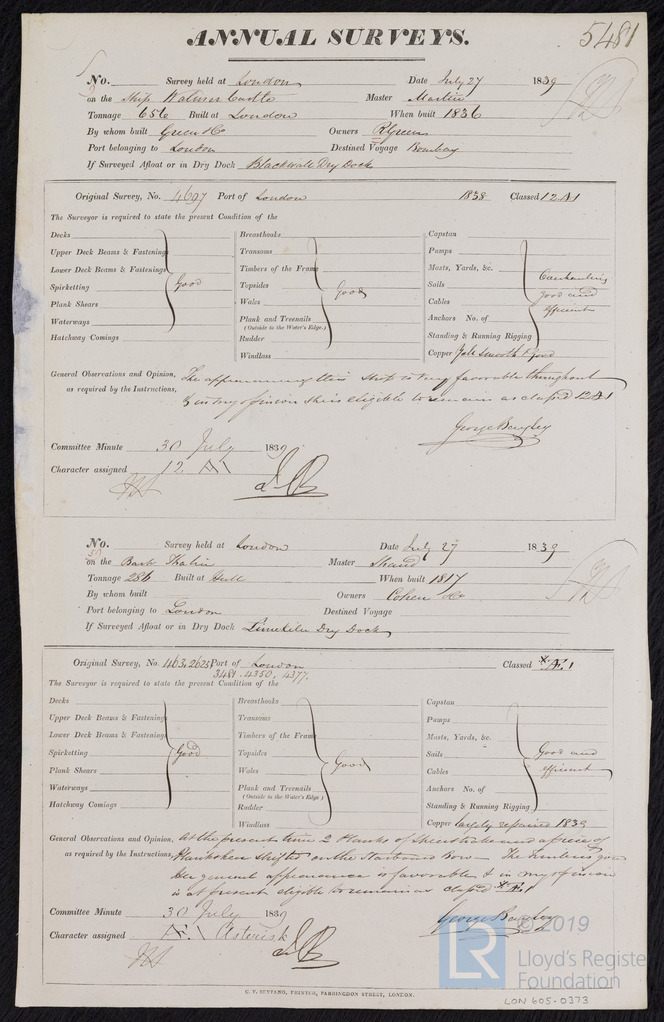 ANNUAL SURVEYS.
5481
No. Survey held at London Date July 27 1839
on the Ship Walmer Castle Master Martin
Tonnage 656 Built at London When built 1836
By whom built Green & Co Owners R Green
Port belonging to London Destined Voyage Bombay
If Surveyed Afloat or in Dry Dock Blackwall Dry Dock
Original Survey, No. 4697 Port of London 1838 Classed 12 A1
The Surveyor is required to state the present Condition of the
Decks
Upper Deck Beams & Fastenings
Lower Deck Beams & Fastenings
Spirketting
Plank Shears
Waterways
Hatchway Comings
Good
Breasthooks
Transoms
Timbers of the Frame
Topsides
Wales
Plank and Treenails
(Outside to the Water's Edge.)
Rudder
Windlass
Good
Capstan
Pumps
Masts, Yards, &c.
Sails
Cables
Anchors No. of
Standing & Running Rigging
good and
efficient
Copper smooth & good
General Observations and Opinion, The appearance of this Ship is very favorable throughout
as required by the Instructions, & in my opinion she is eligible to remain as classed 12 A1
George Bayley
Committee Minute 30 July 1839
Character assigned 12 A1
No. Survey held at London Date July 27 1839
on the Bark Thalia Master Shand
Tonnage 286 Built at Hull When built 1817
By whom built Owners Cohen & Co
Port belonging to London Destined Voyage
If Surveyed Afloat or in Dry Dock Limekiln Dry Dock
Original Survey, No. 463, 2625 Port of London Classed *Æ.1
3481. 4350. 4377.
The Surveyor is required to state the present Condition of the
Decks
Upper Deck Beams & Fastenings
Lower Deck Beams & Fastenings
Spirketting
Plank Shears
Waterways
Hatchway Comings
Good
Breasthooks
Transoms
Timbers of the Frame
Topsides
Wales
Plank and Treenails
(Outside to the Water's Edge)
Rudder
Windlass
Good
Capstan
Pumps
Masts, Yards, &c.
Sails
Cables
Anchors No. of
Standing & Running Rigging
Good and
efficient
Copper largely repaired 1839
General Observations and Opinion, At the present time 2 Planks of Sheerstrake and a piece of
as required by the Instructions, Plank been shifted on the Starboard Bow - The Timbers good
Her general appearance is favorable & in my opinion
is at present eligible to remain as classed *Æ.1
Committee Minute 30 July 1839
George Bayley
Character assigned Æ.1 Asterisk
C. F. SEYFANG, PRINTER, FARRINGDON STREET, LONDON.
© 2019
LR
Lloyd's Register
Foundation
LON 605-0373